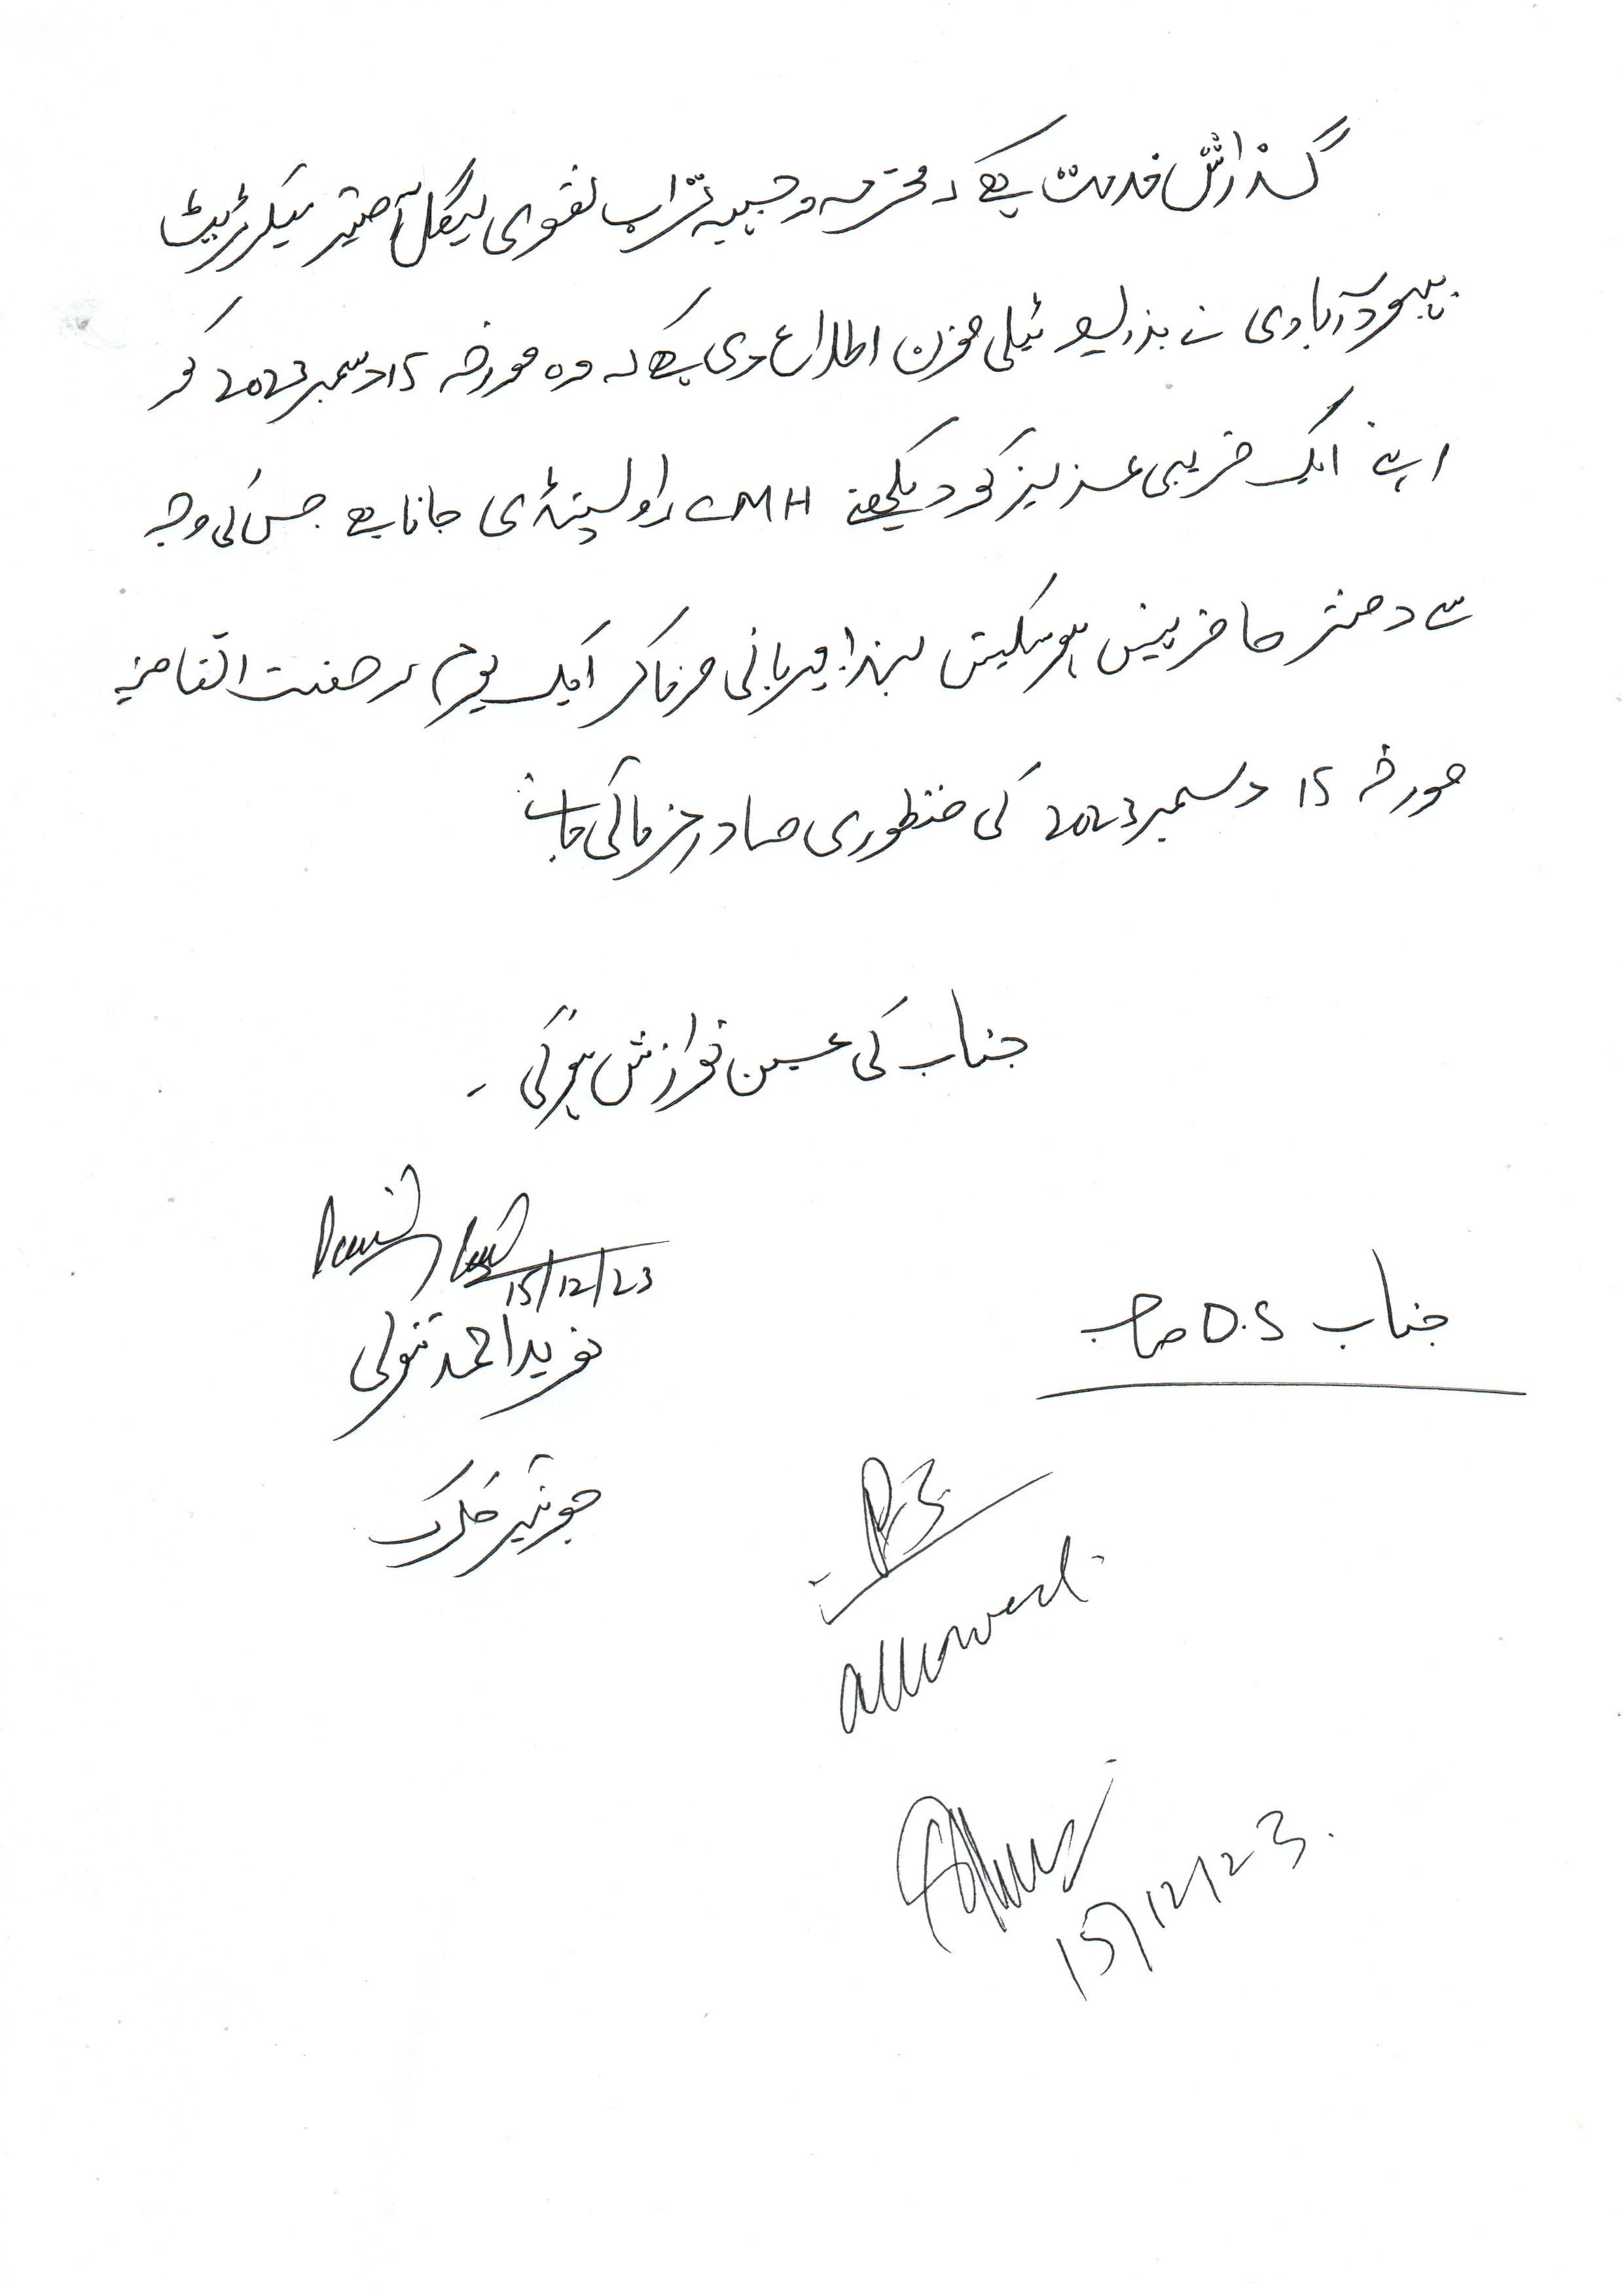 گذارش خدمت ہے کہ محترمہ وجیہہ تراب نقوی لیگل آفیسر سیکرٹریٹ
بہبود آبادی نے بذریعہ ٹیلی فون اطلاع دی ہے کہ وہ مورخہ 15 دسمبر 2023 کو
اپنے ایک قریبی عزیز کو دیکھنے CMH راولپنڈی جانا ہے جس کی وجہ
سے دفتر حاضر نہیں ہو سکیتں لہذا مہربانی فرما کر ایک یوم رخصت اتفاقیہ
مورخہ 15 دسمبر 2023 کی منظوری صادر فرمائی جائے
جناب کی عین نوازش ہو گی ۔
15/12/23
نوید احمد تنولی
جونیئر کلرک
جناب D.S صاحب
allowed.
15/12/23.